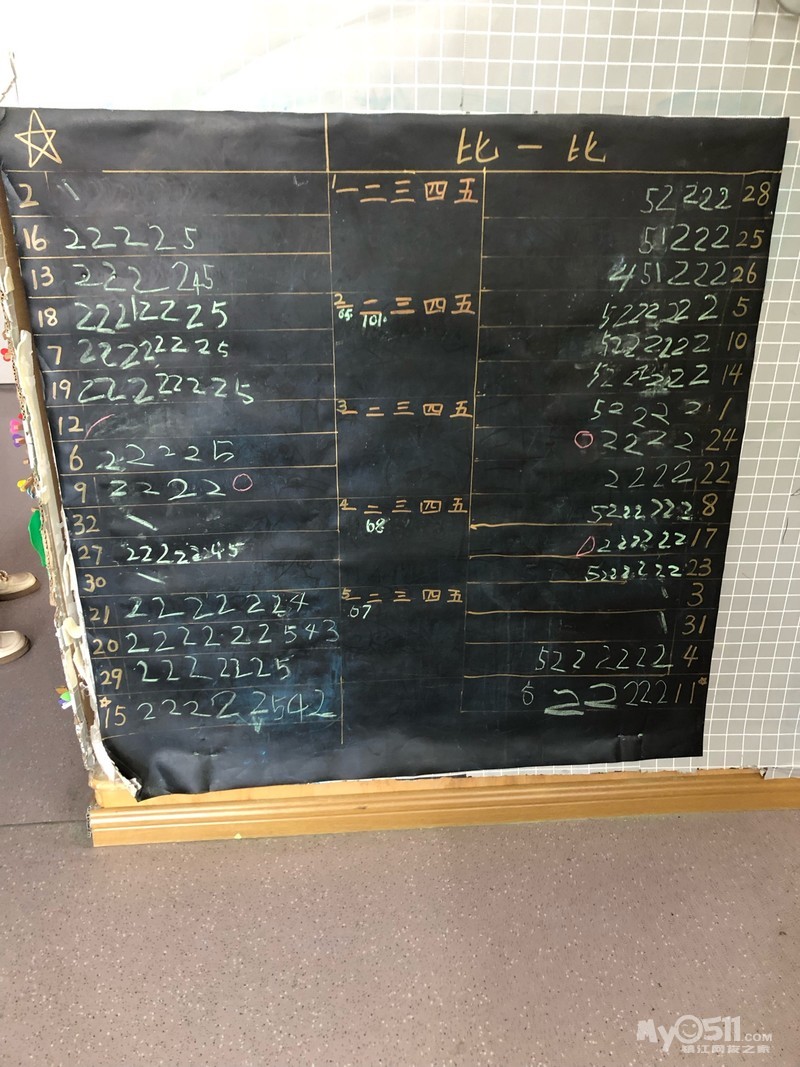 比一比
2 一二三四五 52222 28
16 22225 51222 25
13 222245 451222 26
18 22212225 2 65 二 101 三四五 5222222 5
7 22222225 5222222 10
19 22222225 14
12 3 一二三四五 52222 1
6 222225 2222 24
9 22222 2222 22
32 4 一二 68 三四五 5222222 8
27 22222245 222222 17
30 5222222 23
21 22222224 5 一 57 二三四五 3
20 2222222543 31
29 22222225 5222222 4
15 22222542 5 22222 11
My0511.COM
镇江网友之家